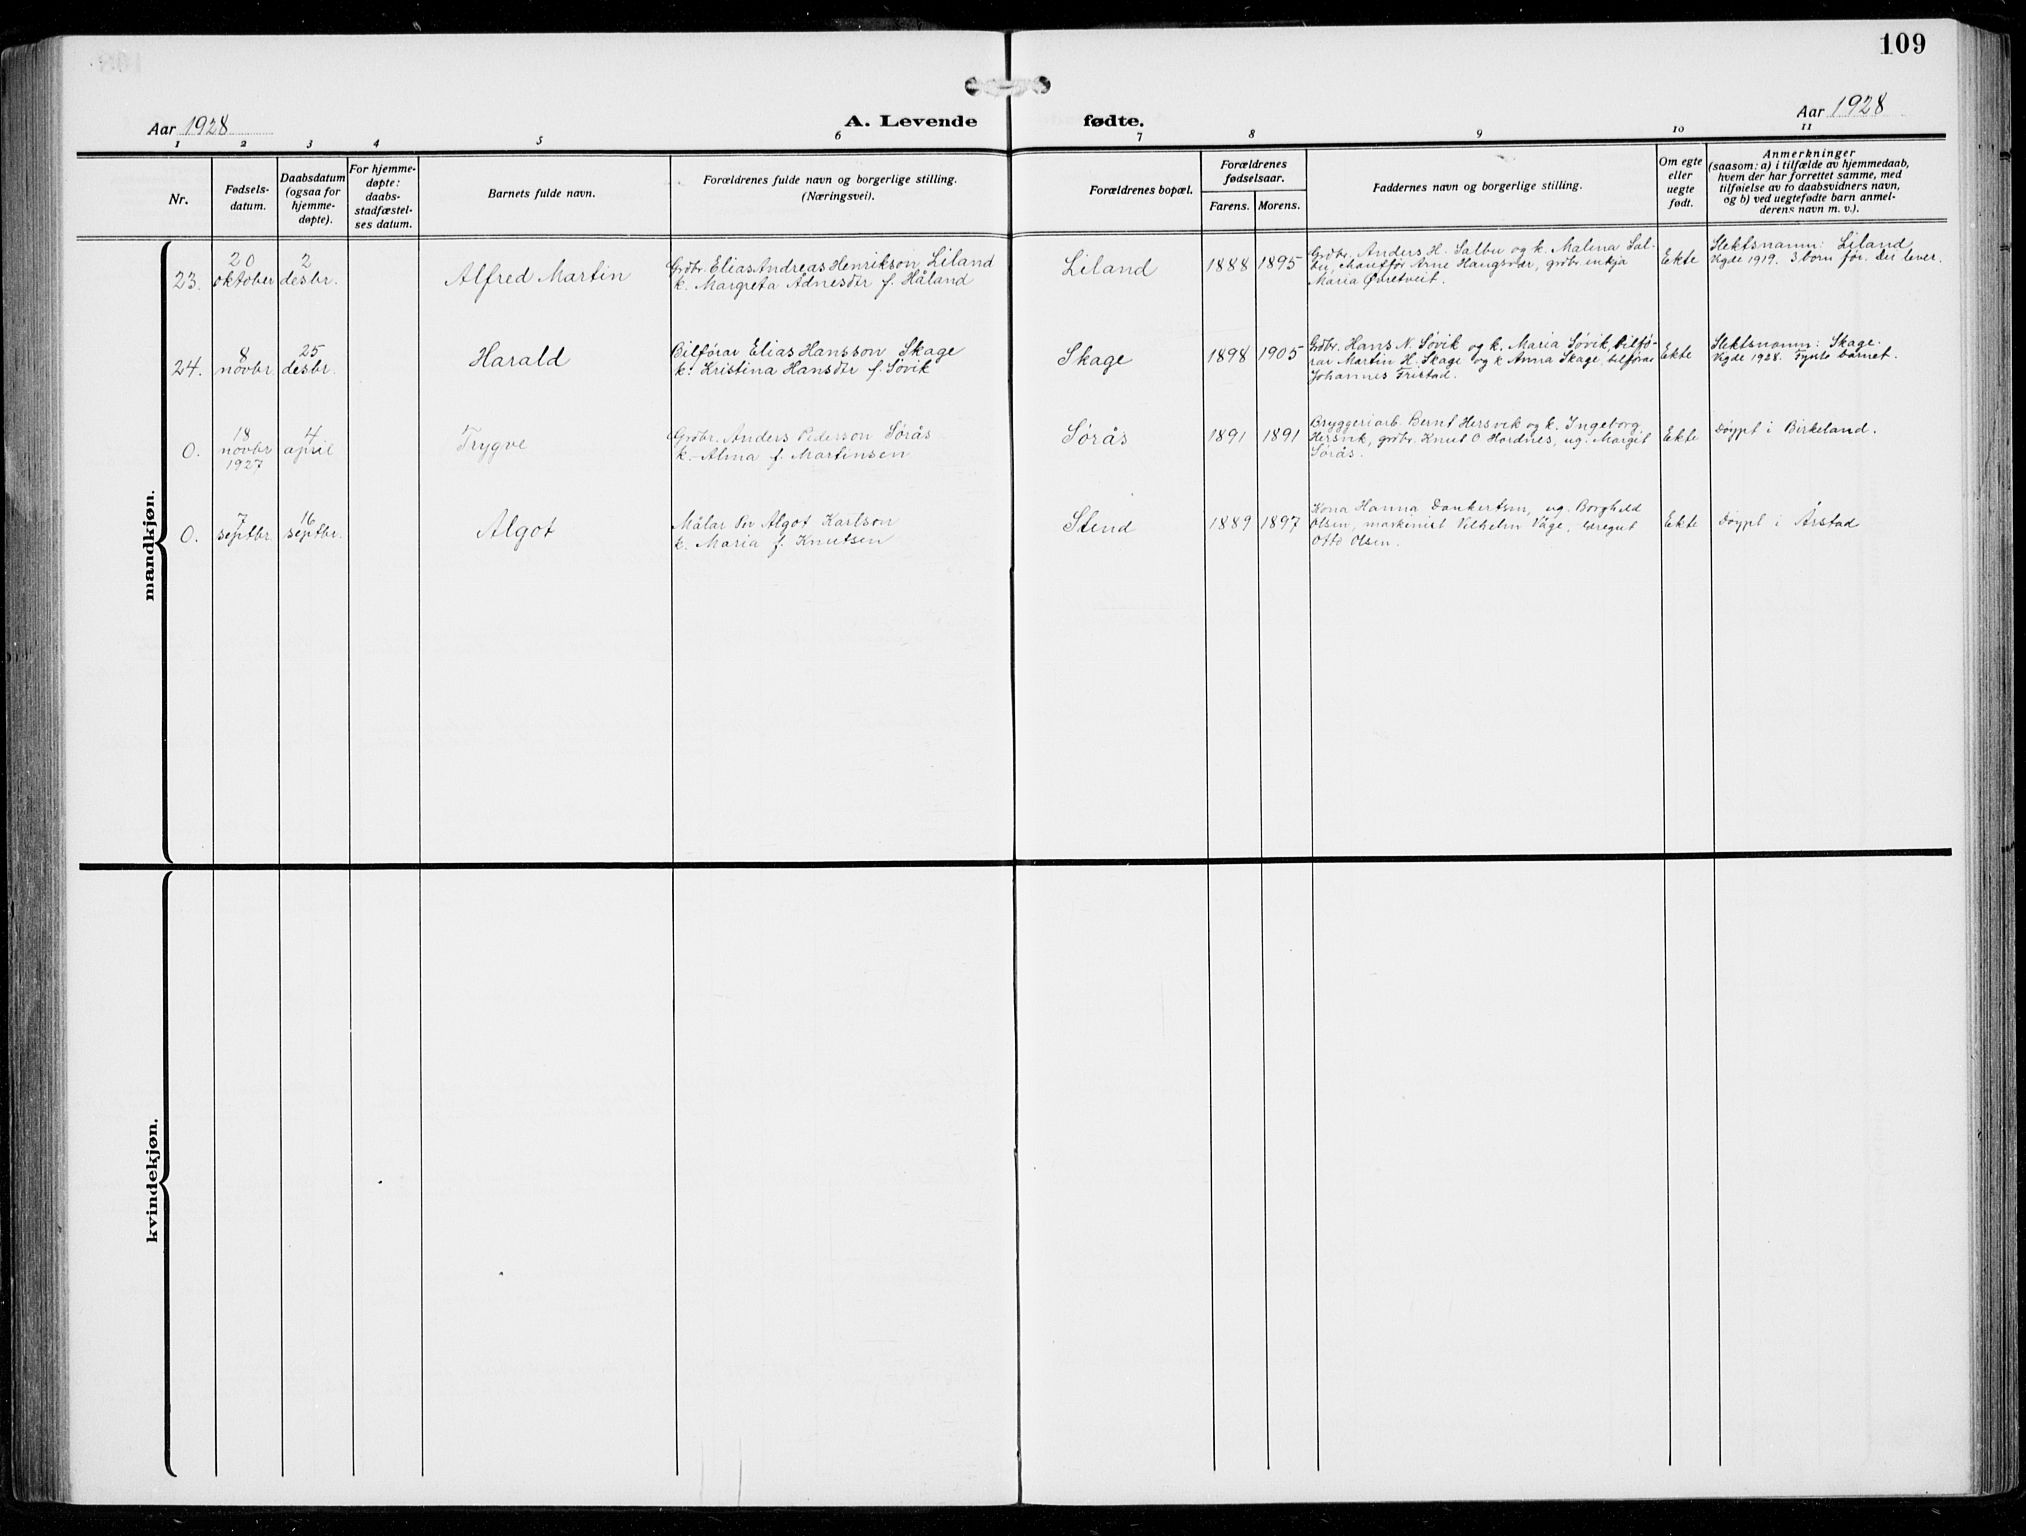 109
Aar 1928
A. Levende fødte.
Aar 1928
1 2 3 4 5 6 7 8 9 10 11
Nr.
Fødsels-
datum.
Daabsdatum
(ogsaa for
hjemme-
døpte).
For hjemme-
døpte:
daabs-
stadfæstel-
ses datum.
Barnets fulde navn.
Forældrenes fulde navn og borgerlige stilling.
(Næringsvei).
Forældrenes bopæl.
Forældrenes
fødselsaar.
Farens. Morens.
Faddernes navn og borgerlige stilling.
Om egte
eller
uegte
født.
Anmerkninger
(saasom: a) i tilfælde av hjemmedaab,
hvem der har forrettet samme, med
tilføielse av to daabsvidners navn,
og b) ved uegtefødte barn anmel-
derens navn m. v.).
mandkjøn.
23.
20
oktober
2
desbr.
Alfred Martin
Grdbr. Elias Andreas Henrikson Liland
k. Margreta Adnesdtr f. Håland
Liland
1888 1895
Grdbr. Anders H. Salbu og k. Malena Sal-
bu, chauffør Arne Haugsvær, grdbr. enkja
Maria Øvretveit.
Ekte
Slektsnamn: Liland
Vigde 1919. 3 born før. Dei lever.
24.
8
novbr
25
desbr.
Harald
Bilførar Elias Hansson Skage
k. Kristina Hansdtr f. Søvik
Skage
1898 1905
Grdbr. Hans N. Søvik og k. Maria Søvik, bilfø-
rar Martin H. Skage og k Anna Skage, bilførar
Johannes Tristad.
Ekte
Slektsnamn: Skage.
Vigde 1928. Fyrste barnet.
0.
18
novbr
1927
4
april
Trygve
Grdbr. Anders Pederson Sørås
k. Alma f. Martinsen
Sørås
1891 1891
Bryggeriarb. Bernt Hersvik og k. Ingeborg
Hersvik, grdbr. Knut O Hordnes, ug. Margit
Sørås.
Ekte
Døypt i Birkeland.
0.
7
septbr.
16
septbr.
Algot
Målar Per Algot Karlson
k. Maria f. Knutsen
Stend
1889 1897
Kona Hanna Dankertsen, ug. Borghild
Olsen, maskenist Vilhelm Våge,
Otto Olsen.
Ekte
Døypt i Årstad
kvindekjøn.